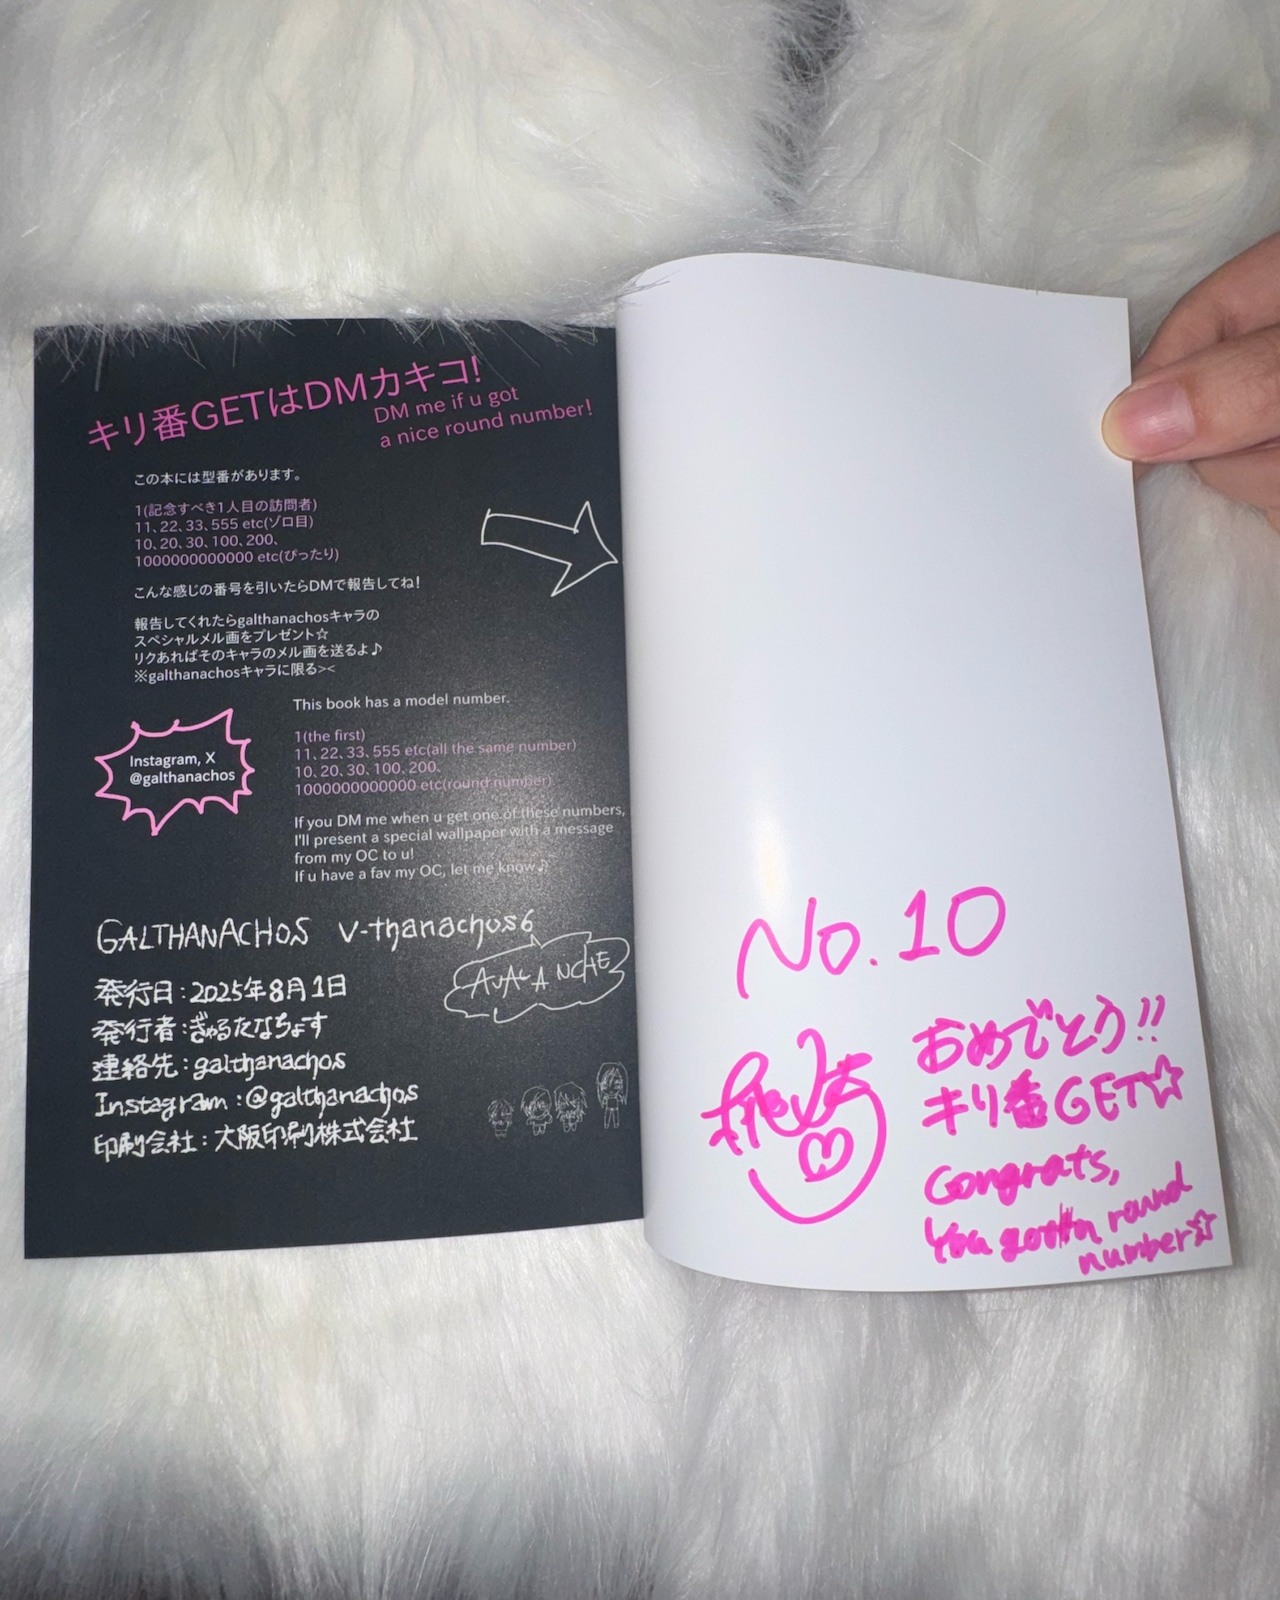 キリ番GETはDMカキコ!
DM me if u got
a nice round number!
この本には型番があります。
1(記念すべき1人目の訪問者)
11、22、33、555 etc(ゾロ目)
10、20、30、100、200、
1000000000000 etc(ぴったり)
こんな感じの番号を引いたらDMで報告してね!
報告してくれたらgalthanachosキャラの
スペシャルメル画をプレゼント☆
リクあればそのキャラのメル画を送るよ♪
※galthanachosキャラに限る><
This book has a model number.
1(the first)
11、22、33、555 etc(all the same number)
10、20、30、100、200、
1000000000000 etc(round number)
If you DM me when u get one of these numbers,
I'll present a special wallpaper with a message
from my OC to u!
If u have a fav my OC, let me know♪
Instagram, X
@galthanachos
GALTHANACHOS V-thanachos6
AVALANCHE
発行日:2025年8月1日
発行者:ぎゃるたなちょす
連絡先:galthanachos
Instagram:@galthanachos
印刷会社:大阪印刷株式会社
No.10
おめでとう!!
キリ番GET☆
Congrats,
You gotta round
number☆